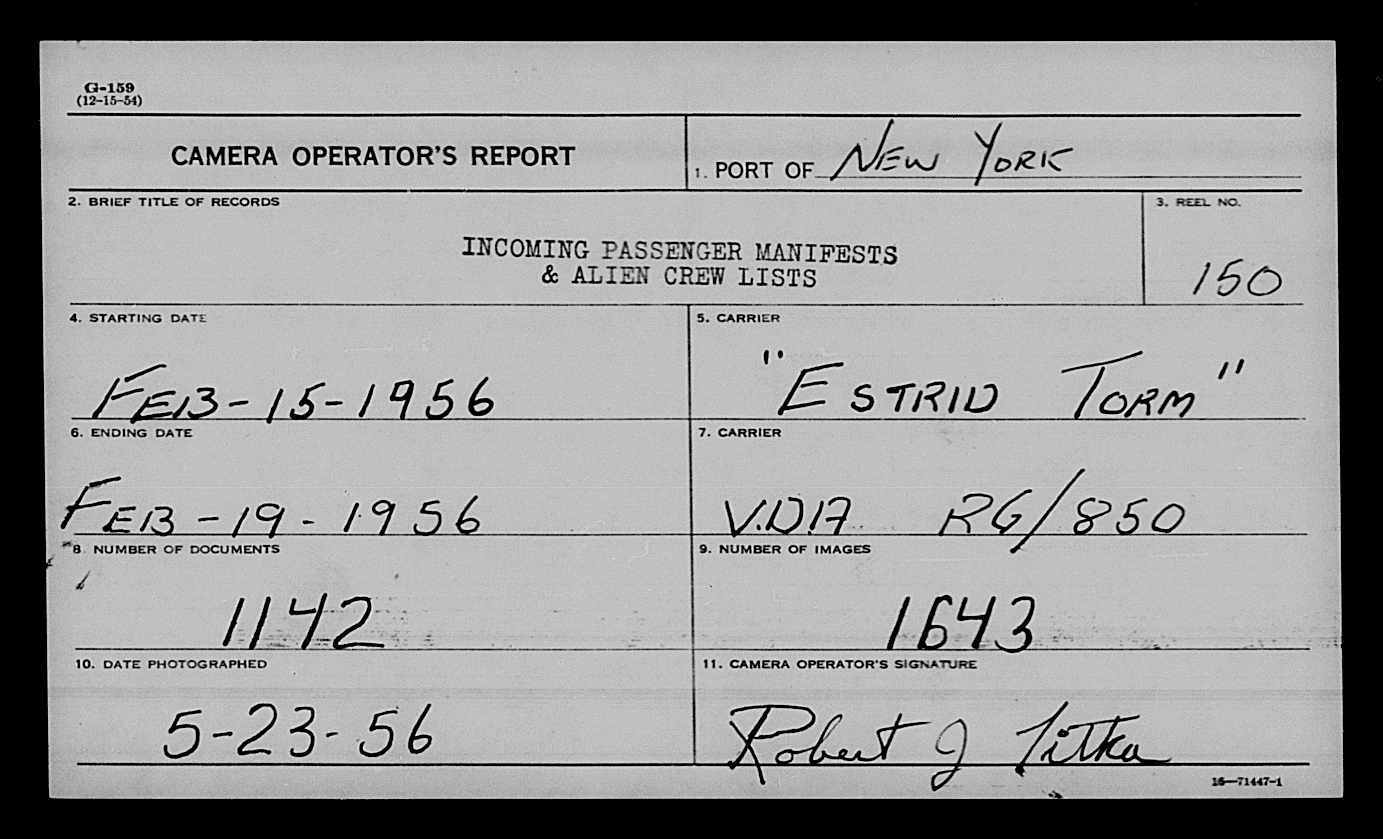 G-159
(12-15-54)
CAMERA OPERATOR'S REPORT
1. PORT OF NEW YORK
2. BRIEF TITLE OF RECORDS
INCOMING PASSENGER MANIFESTS
& ALIEN CREW LISTS
3. REEL NO.
150
4. STARTING DATE
FEB-15-1956
5. CARRIER
"ESTRID TORM"
6. ENDING DATE
FEB-19-1956
7. CARRIER
V.D.A RG/850
8. NUMBER OF DOCUMENTS
1142
9. NUMBER OF IMAGES
1643
10. DATE PHOTOGRAPHED
5-23-56
11. CAMERA OPERATOR'S SIGNATURE
Robert J
16—71447-1